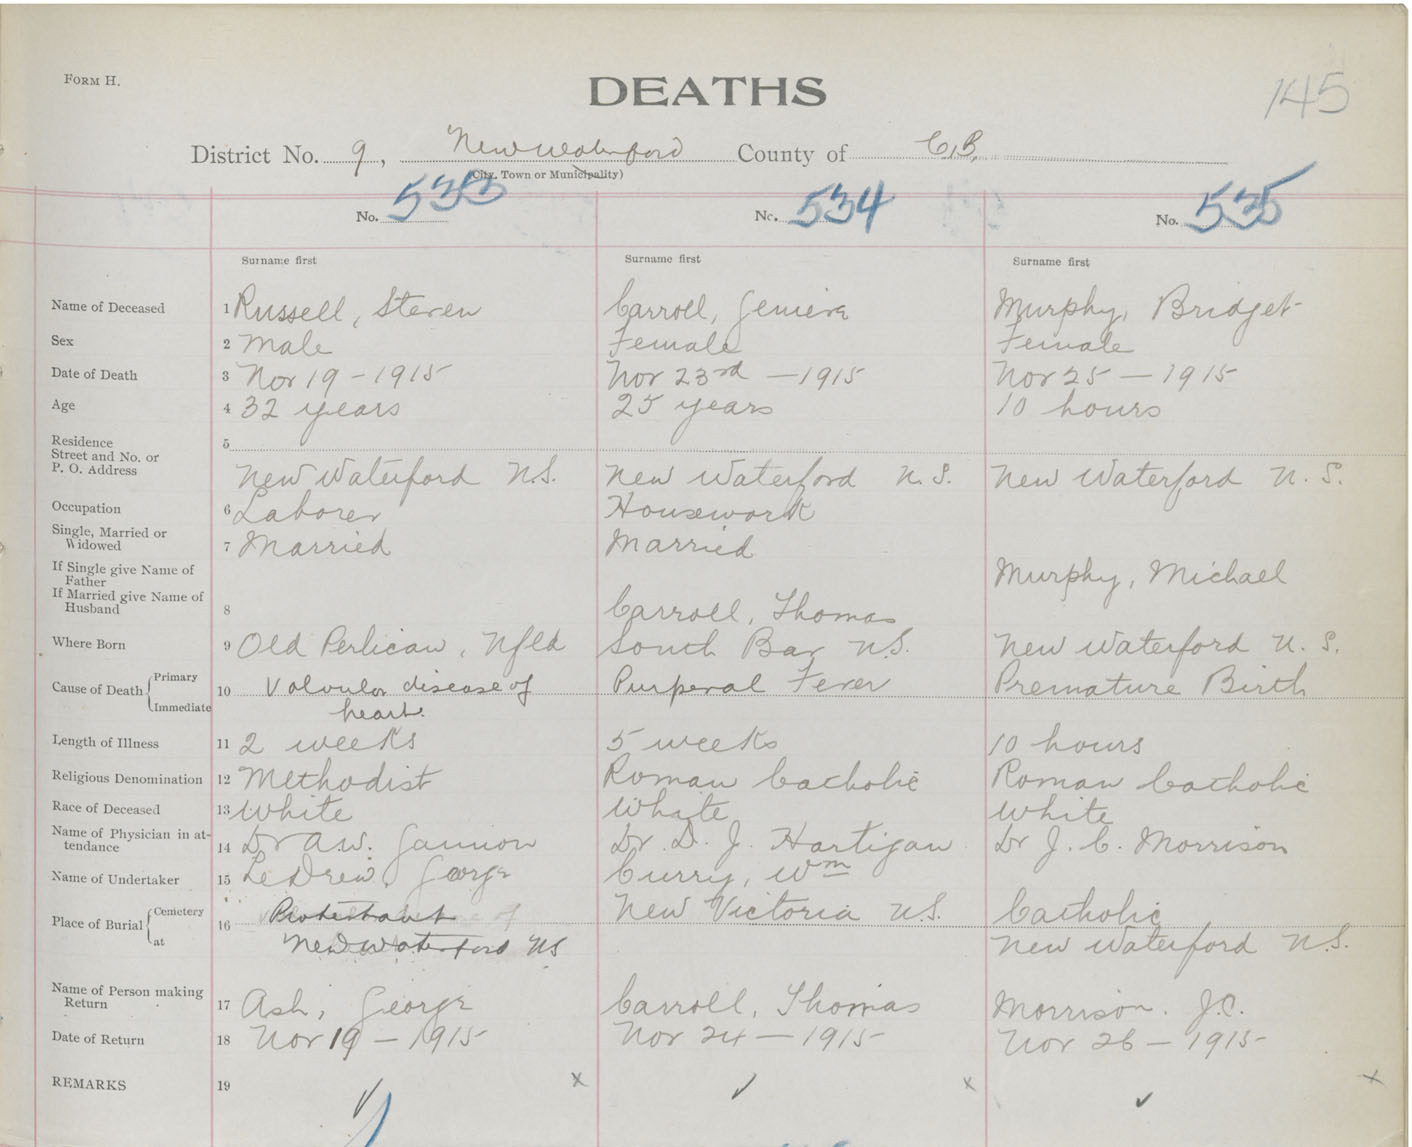 FORM H.
DEATHS
145
District No. 9, New Waterford County of C.B.
(City, Town or Municipality)
No. 533 No. 534 No. 535
Surname first Surname first Surname first
Name of Deceased 1 Russell, Steven Carroll, Geniera Murphy, Bridget
Sex 2 Male Female Female
Date of Death 3 Nov 19 - 1915 Nov 23rd - 1915 Nov 25 - 1915
Age 4 32 years 25 years 10 hours
Residence 5
Street and No. or
P. O. Address New Waterford N.S. New Waterford N.S. New Waterford N.S.
Occupation 6 Laborer Housework
Single, Married or
Widowed 7 Married Married
If Single give Name of
Father Murphy, Michael
If Married give Name of
Husband 8 Carroll, Thomas
Where Born 9 Old Perlican, Nfld South Bar N.S. New Waterford N.S.
Cause of Death Primary 10 Valvular disease of Purperal Fever Premature Birth
Immediate heart.
Length of Illness 11 2 weeks 5 weeks 10 hours
Religious Denomination 12 Methodist Roman Catholic Roman Catholic
Race of Deceased 13 White White White
Name of Physician in at-
tendance 14 Dr A.W. Gannon Dr. D. J. Hartigan Dr J. C. Morrison
Name of Undertaker 15 LeDrew, George Curry, Wm
Place of Burial Cemetery 16 Protestant New Victoria N.S. Catholic
at New Waterford NS New Waterford N.S.
Name of Person making
Return 17 Ash, George Carroll, Thomas Morrison. J.C.
Date of Return 18 Nov 19 - 1915 Nov 24 - 1915 Nov 26 - 1915
REMARKS 19 x x x